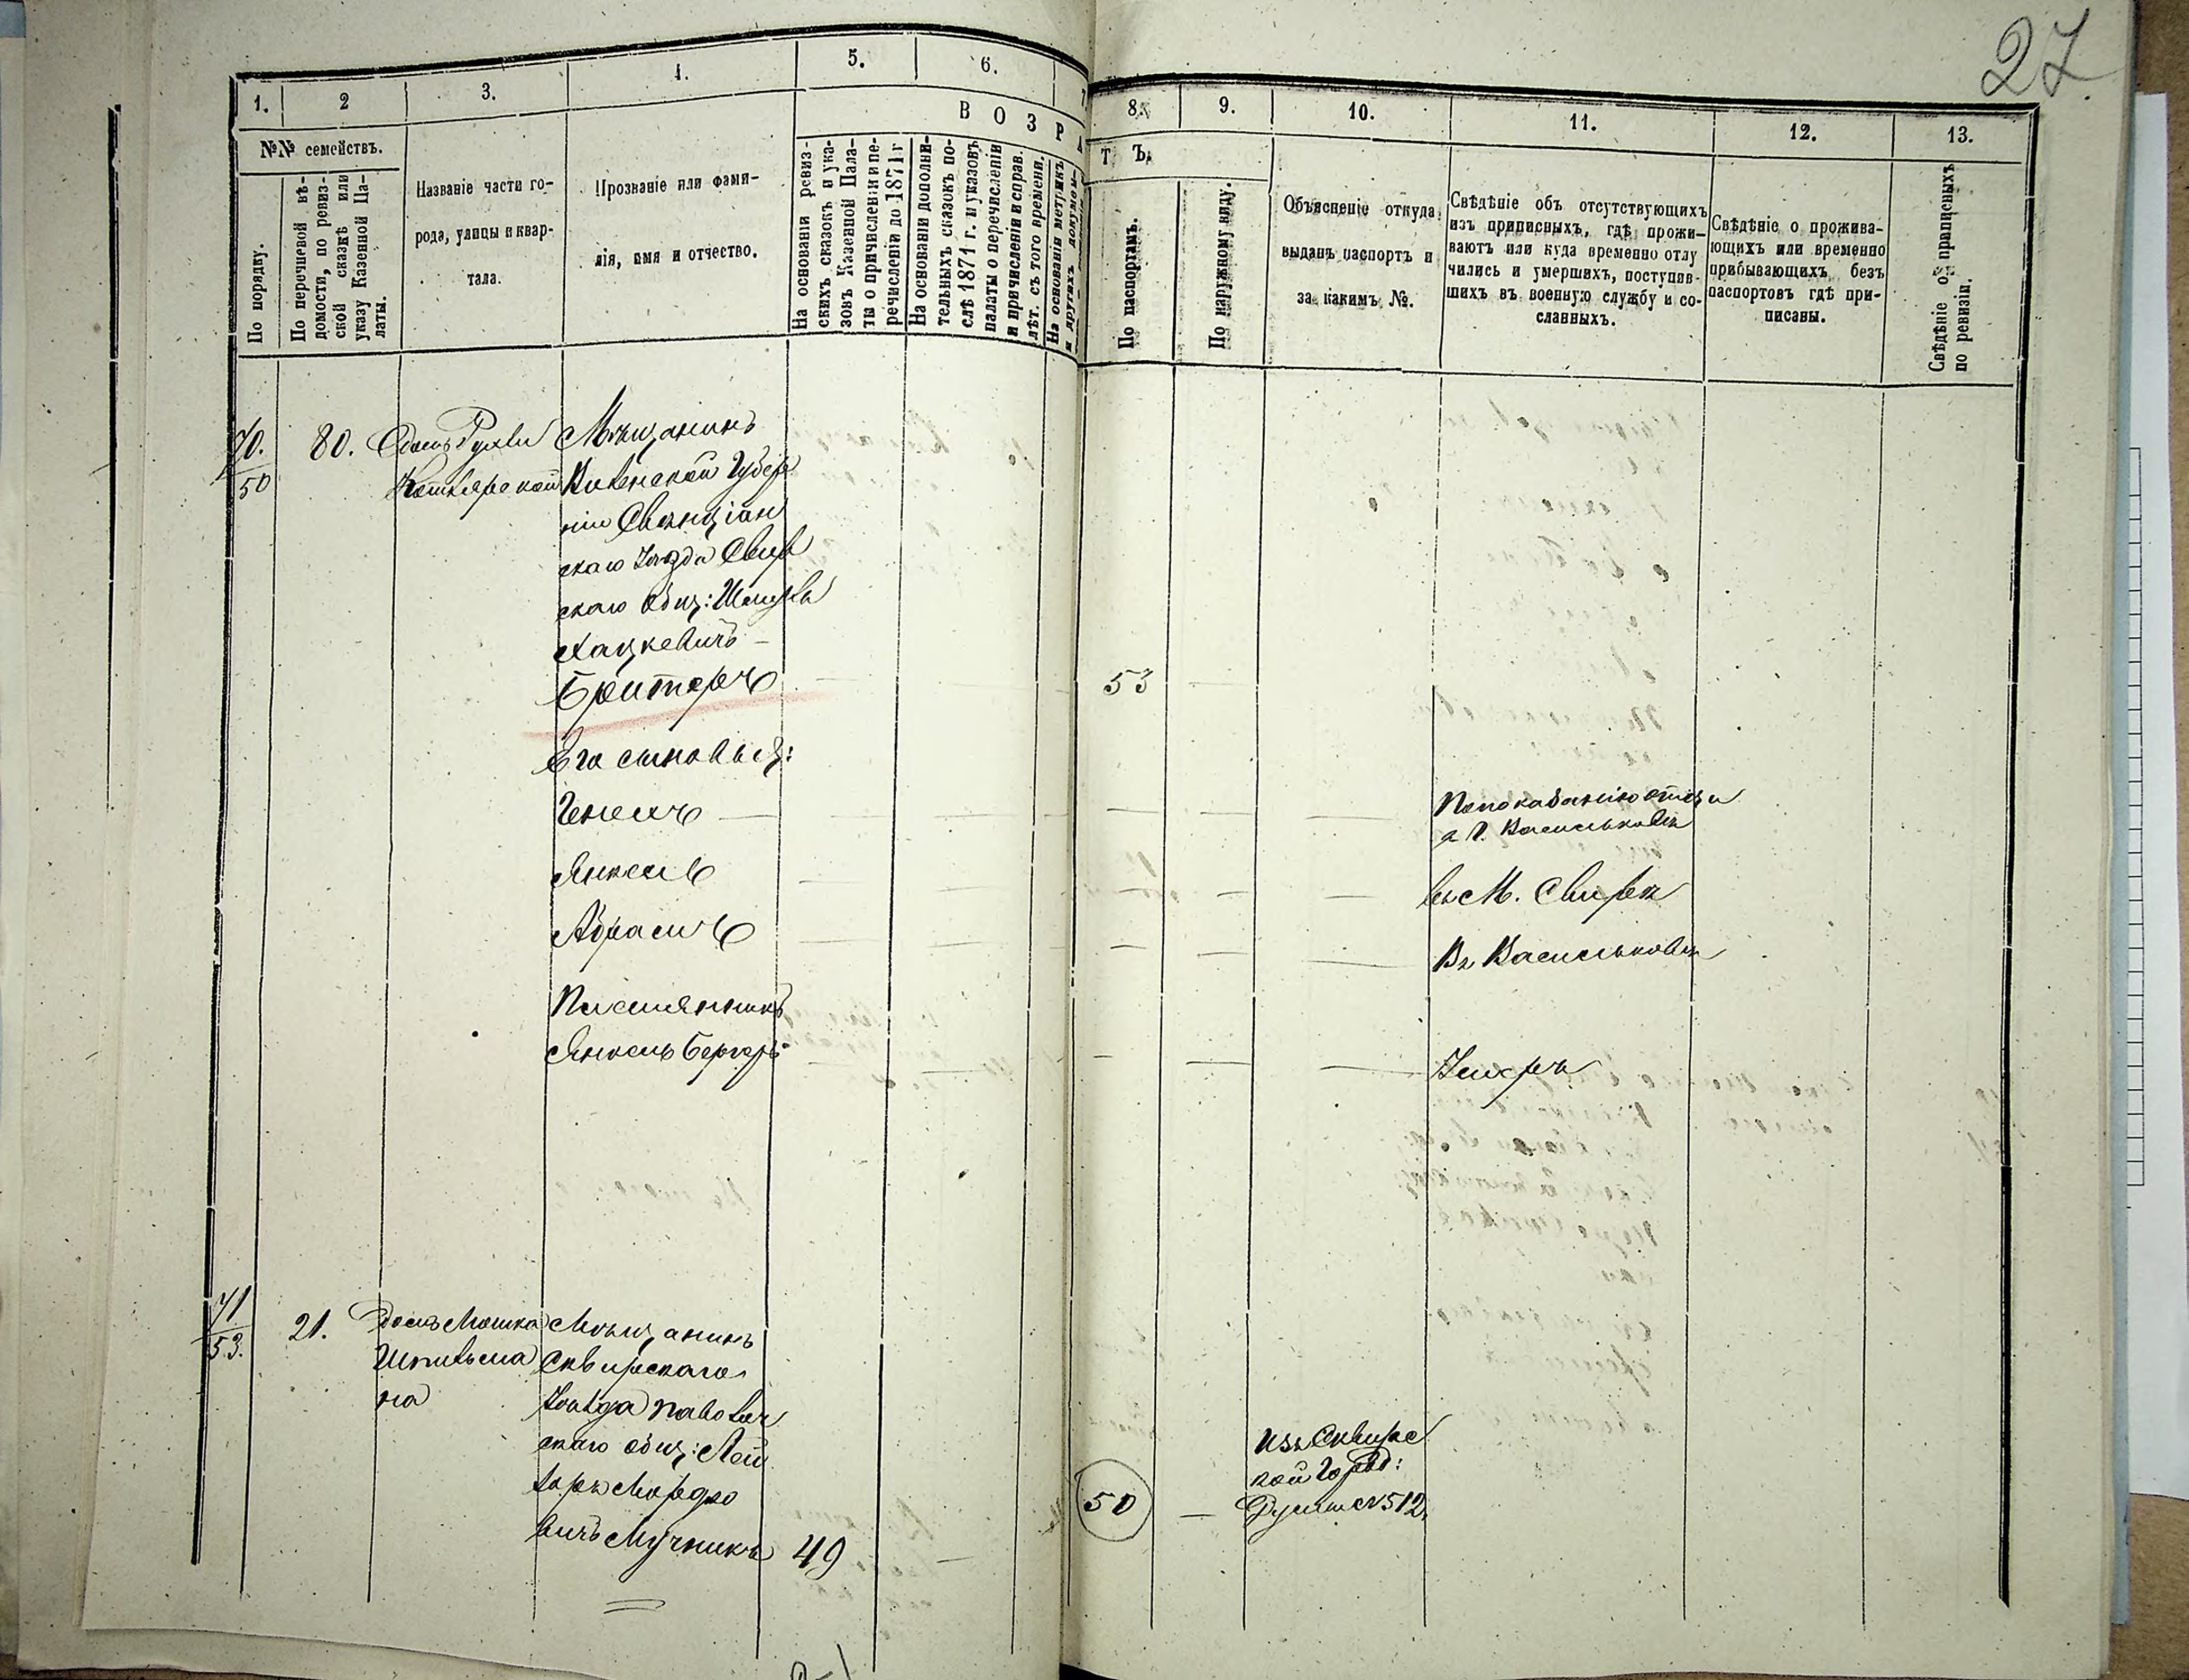 27.
1.
2
3.
4.
5.
6.
7
8.
9.
10.
11.
12.
13.
В О З Р А
Т Ъ.
№№ семействъ.
По порядку.
По перечневой вѣ-
домости, по ревиз-
ской сказкѣ или
указу Казенной Па-
латы.
Названіе части го-
рода, улицы и квар-
тала.
Прозваніе или фами-
лія, имя и отчество.
На основаніи ревиз-
скихъ сказокъ и ука-
зовъ Казенной Пала-
ты о причисленіи и пе-
речисленіи до 1871 г
На основаніи дополни-
тельныхъ сказокъ по-
слѣ 1871 г. и указовъ
палаты о перечисленіи
и причисленіи и справ.
лѣт. съ того времени.
На основаніи метрикъ
и другихъ докумен-
По паспортамъ.
По наружному виду.
Объясненіе откуда
выданъ паспортъ и
за какимъ №.
Свѣдѣніе объ отсутствующихъ
изъ приписныхъ, гдѣ прожи-
ваютъ или куда временно отлу
чились и умершихъ, поступив-
шихъ въ военную службу и со-
сланныхъ.
Свѣдѣніе о прожива-
ющихъ или временно
прибывающихъ безъ
паспортовъ гдѣ при-
писаны.
Свѣдѣніе о приписныхъ
по ревизіи.
70.
50
80.
Домъ Рухли
Котлярской
Мѣщанинъ
Виленской Губер
ніи Свенціан
скаго Уѣзда Свир
скаго общ:
Хацкевичъ
Бритеръ
53
Его сыновья:
Генехъ
По показанію отца
в г. Васильковѣ
Янкель
въ М. Свирѣ
Абрамъ
Въ Васильковѣ
Племянникъ
Янкель Бергеръ
Умеръ
71
53.
21.
домъ Мошка
Шпильма
на
Мѣщанинъ
Сквирскаго
Уѣзда Паволоч
скаго общ: Лей
зоръ Мордко
вичъ Мучникъ
49
50
Изъ Сквирс
кой Город:
Думы №512.